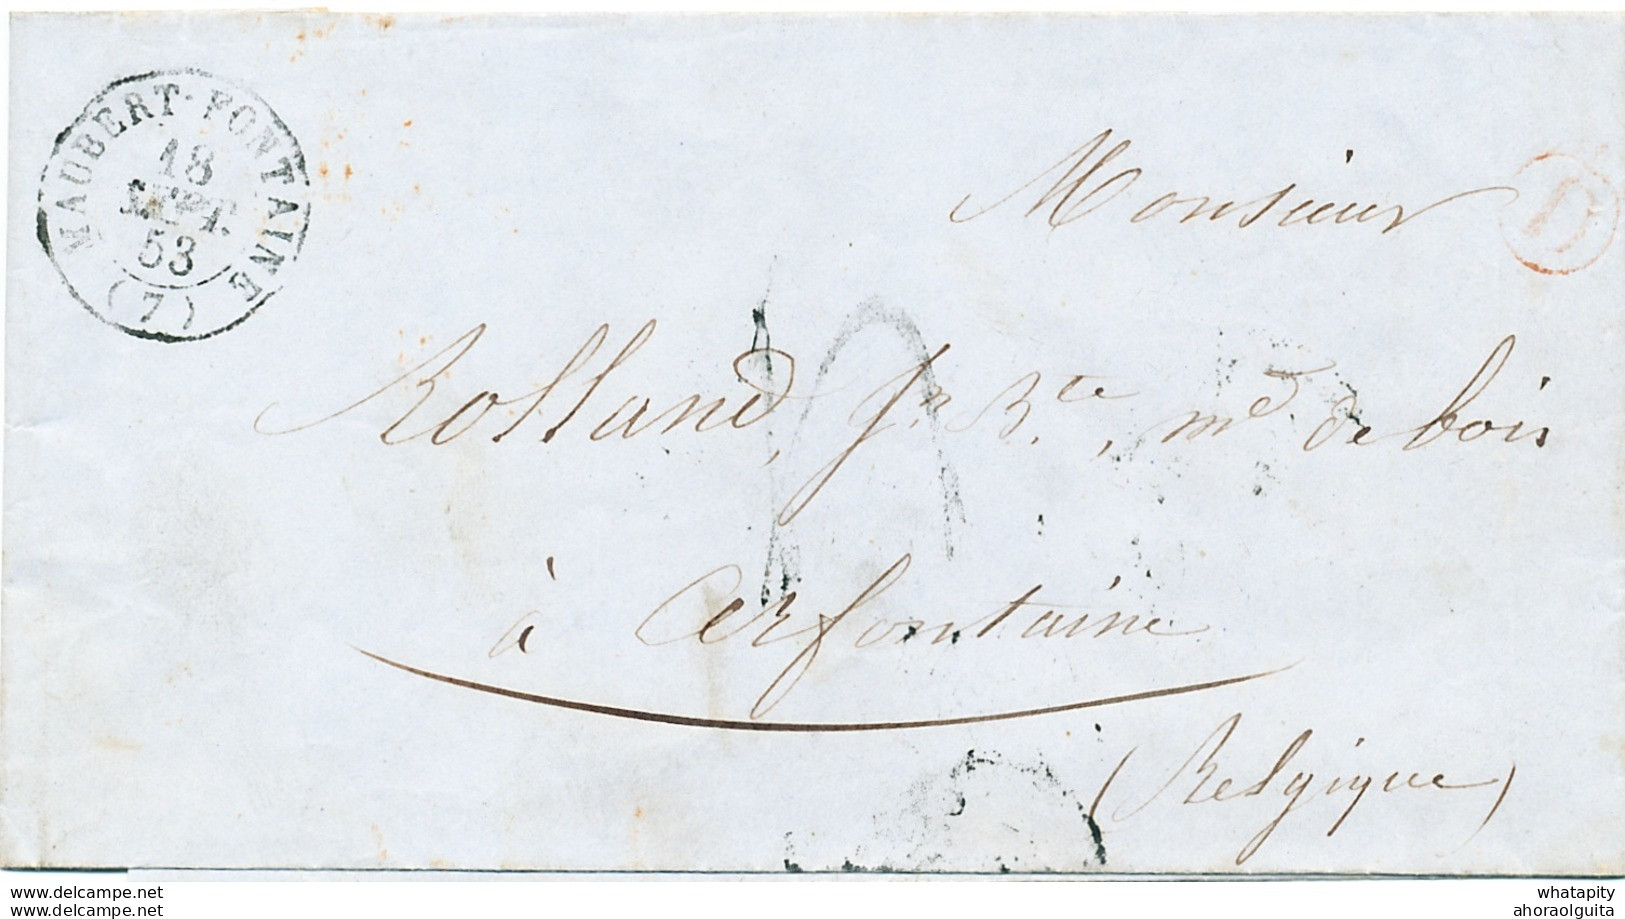 MAUBERT-FONTAINE
18
SEPT.
53
(7)
D
Monsieur
Rolland, Jn Bte, md de bois
à Cerfontaine
(Belgique)
www.delcampe.net
www.delcampe.net
whatapity
ahoraolguita